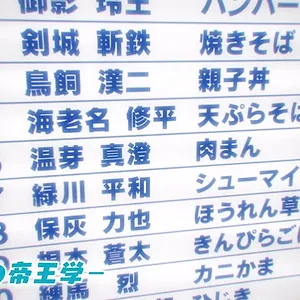 御影 玲王 ハンバー
剣城 斬鉄 焼きそば
鳥飼 漢二 親子丼
海老名 修平 天ぷらそ
温芽 真澄 肉まん
7 緑川 平和 シューマイ
8 保灰 力也 ほうれん草
蒼太 きんぴらご
練馬 烈 カニかま
帝王学ー